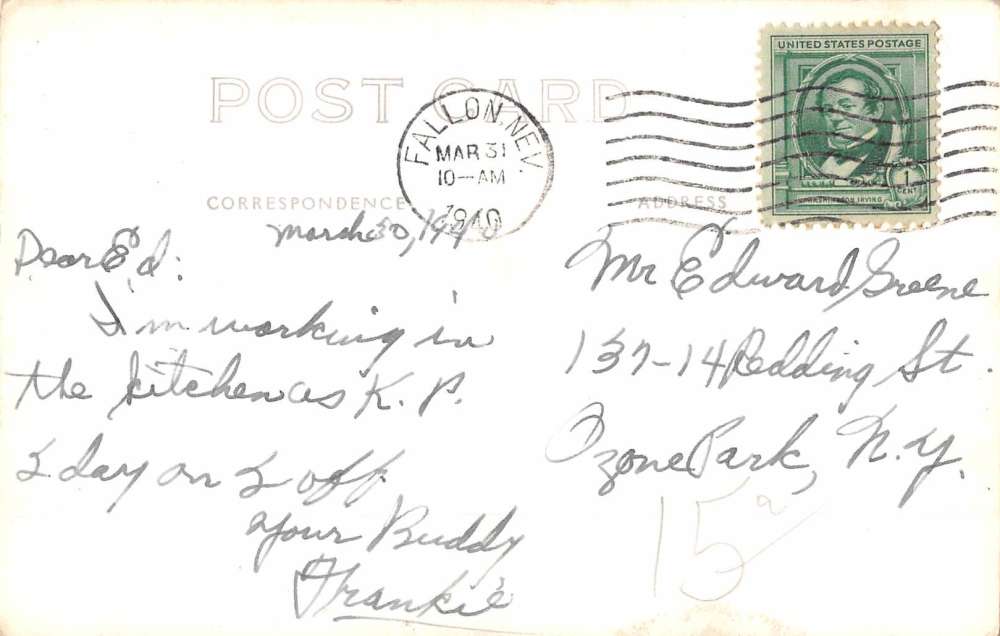 UNITED STATES POSTAGE
1
CENT
WASHINGTON IRVING
POST CARD
FALLON, NEV.
MAR 31
10—AM
1940
CORRESPONDENCE
ADDRESS
March 30, 1940
Dear Ed:
I'm working in
the kitchen as K. P.
2 day on 2 off.
Your Buddy
Frankie
Mr Edward Greene
137-14 Redding St.
Ozone Park, N.Y.
15